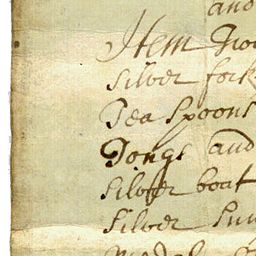 and
Item Two
silver fork
Tea Spoons
Tongs and
silver boat
silver